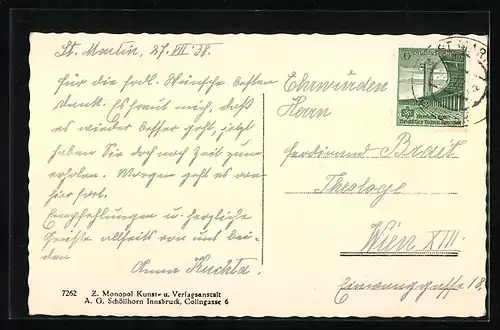 St. Martin, 27. VII. 38.
Für die frdl. Wünsche besten
Dank. Es freut mich, daß
es wieder besser geht, jetzt
haben Sie doch noch Zeit zum
erholen. Morgen geht es von
hier fort.
Empfehlungen u. herzliche
Grüße allseits von uns bei-
den
Anna Kuchta.
Ehrwürden
Herrn
Ferdinand Brait
Theologe
Wien XIII.
18.
6
7262 Z. Monopol Kunst- u. Verlagsanstalt
A. G. Schöllhorn Innsbruck, Colingasse 6